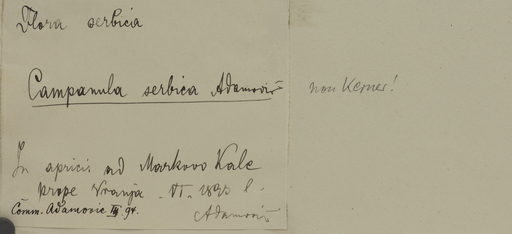 Flora serbica
Campanula serbica Adamović non Kerner!
In apricis ad Markovo Kale
prope Vranja. VI. 1893 l.
Adamović
Comm. Adamovic III 94.